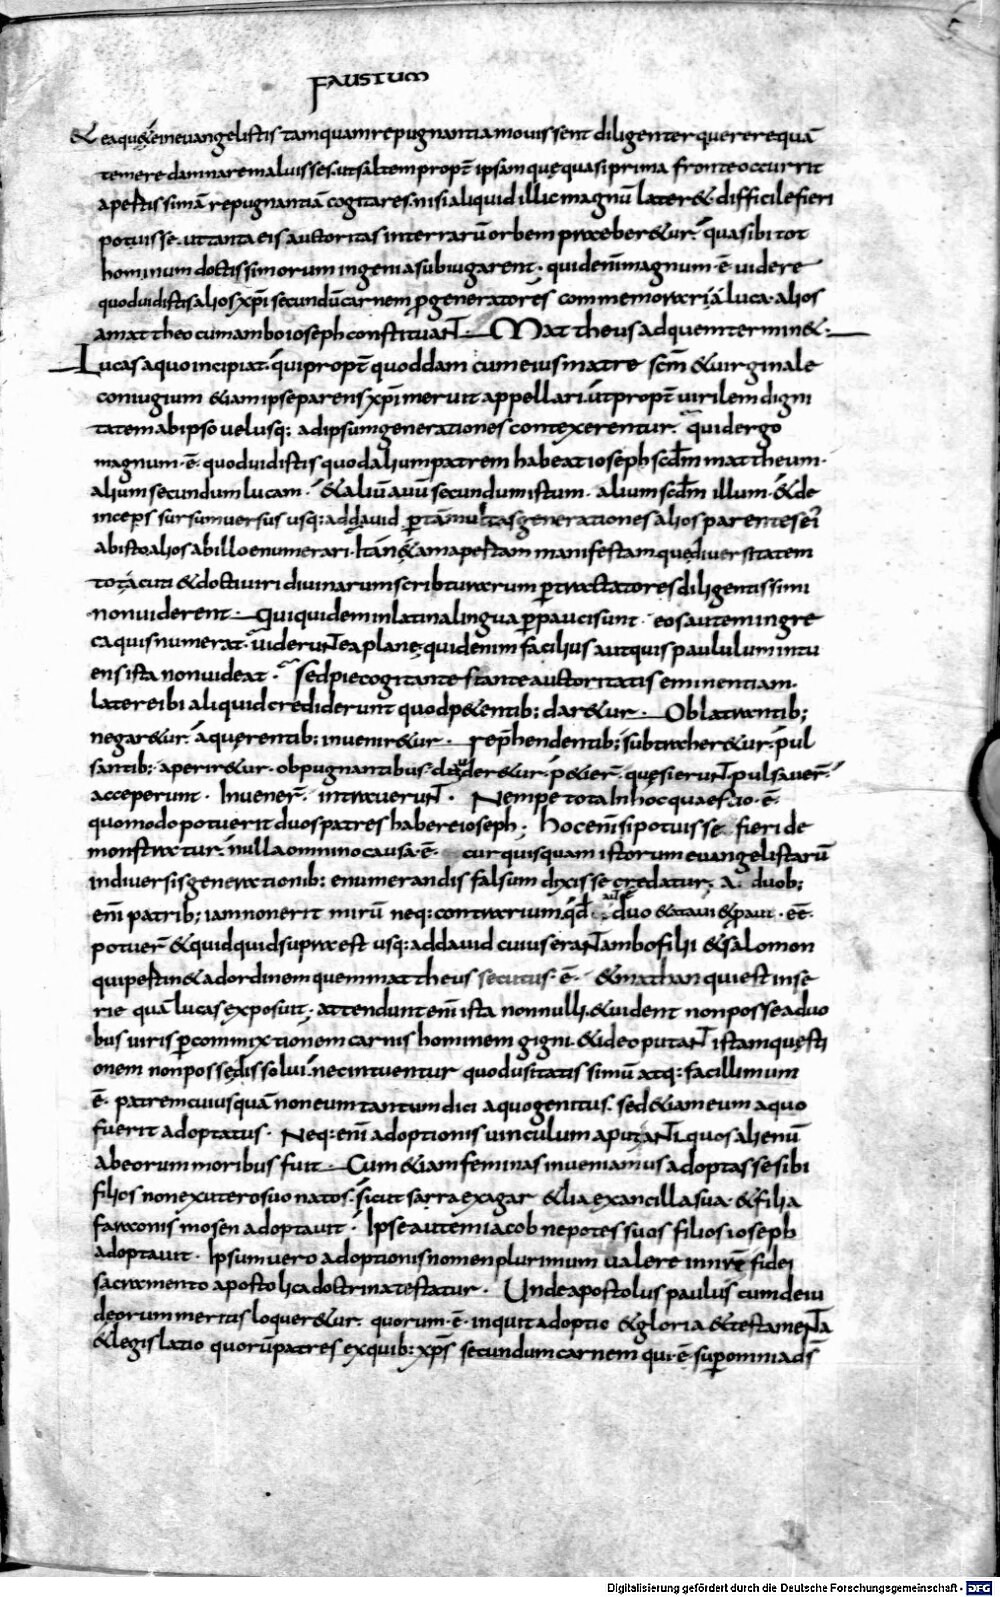 FAUSTUM
5
& eaqu&ę́ineuangelistis tamquamrepugnantiamouissent diligenterquererequā
temeredamnaremaluisses. utsaltempropt̄ ipsam quęquasiprima fronteoccurrit
apertissimā repugnantiā cogitares. nisialiquid illic magnū later& difficile fieri
potuisse. uttanta eis auctoritas interrarū orbem praeeber&ur. quasibi tot
hominum doctissimorum ingenia subiugarent. quidenī magnum ē uidere
quoduidistis alios xp̄i secundū carnem p̄generatores commemorari a luca. alios
amattheo cumambo ioseph constituaNT. Mattheus adquemtermin&.
Lucas aquoincipiat. quipropt̄ quoddam cumeiusmatre sc̄m & uirginale
coniugium &iam ipse parens xp̄i meruit appellari. utpropt̄ uirilem digni
tatem abipso uelusq; adipsum generationes contexerentur. quid ergo
magnum ē. quoduidistis quodalium patrem habeat ioseph scd̄m mattheum.
alium secundum lucam. &aliū auū secundum istum. alium scd̄m illum. & de
inceps sursumuersus usq; addauid p̄tam multas generationes alios parentes ei
abisto alios abillo enumerari. Itan& amapertam manifestam quędiuersitatem
tot acuti & docti uiri diuinarum scribturarum p̄tractatores diligentissimi
nonuiderent. Qui quidem inlatina lingua p̄pauci sunt. eos autem ingre
ca quisnumerat. uideruNT ea plane. quidenim facilius autquispaululum intu
ens ista nonuideat. Sedpiecogitantes tante auctoritatis eminentiam.
latere ibi aliquid crediderunt quodp&entib; dar&ur. Oblatrantib;
negar&ur. aquęrentib; inuenir&ur. rep̄hendentib; subtraher&ur. pul
santib; aperir&ur. obpugnantibus cluder&ur. p&ier̄. quęsieruNT. pulsauer̄.
acceperunt. Inuener̄. intraueruNT. Nempe tota In hoc quaestio ē.
quomodo potuerit duos patres habere ioseph. hoc enī si potuisse fieri de
monstratur. nulla omnino causa ē cur quisquam istorum euangelistarū
indiuersis generationib; enumerandis falsum dixisse credatur. A duob;
enī patrib; iam nonerit mirū neq; contrarium qd̄ duo &ataui &paui. ēē.
potuer̄ & quidquid supra est usq; addauid cuiuseraNT ambo filii &salomon
qui pertin& ad ordinem quem mattheus secutus ē. & nathan qui est inse
rie quā lucas exposuit. attendunt enī ista nonnulli. &uident non posse aduo
bus uiris p̄commixtionem carnis hominem gigni. & ideo putaNT istam quęsti
onem non posse dissolui. nec intuentur quod usitatissimū atq; facillimum
ē. patrem cuiusquā non eum tantum dici aquogenitus. sed &iam eum aquo
fuerit adoptatus. Neq; enī adoptionis uinculum aputaNTiquos alienū
abeorum moribus fuit. Cum &iam feminas inueniamus adoptasse sibi
filios non exuterosuo natos. sicut sarra exagar & lia exancilla sua. & filia
faraonis mosen adoptauit. Ipse autem iacob nepotes suos filios ioseph
adoptauit. Ipsum uero adoptionis nomen plurimum ualere innr̄ē fidei
sacramento apostolica doctrina testatur. Unde apostolus paulus cum deiu
deorum meritis loquer&ur. quorum ē inquit adoptio & gloria & testameNTa
& legis latio quorū patres exquib; xp̄s secundum carnem qui ē sup̄ omnia ds̄
Digitalisierung gefördert durch die Deutsche Forschungsgemeinschaft - DFG